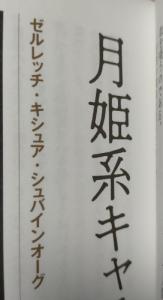 月姫系キャ
ゼルレッチ・キシュア・シュバインオーグ